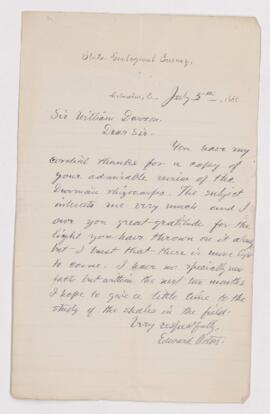 State Geological Survey,
Columbus, O. July 5th, 188
Sir William Dawson.
Dear Sir.
You have my
cordial thanks for a copy of
your admirable review of the
Devonian rhizocarps. The subject
interests me very much and I
owe you great gratitude for the
light you have thrown on it already
but I trust that there is more light
to come. I have no specially new
facts but within the next two months
I hope to give a little time to the
study of the shales in the field.
Very respectfully,
Edward Orton.